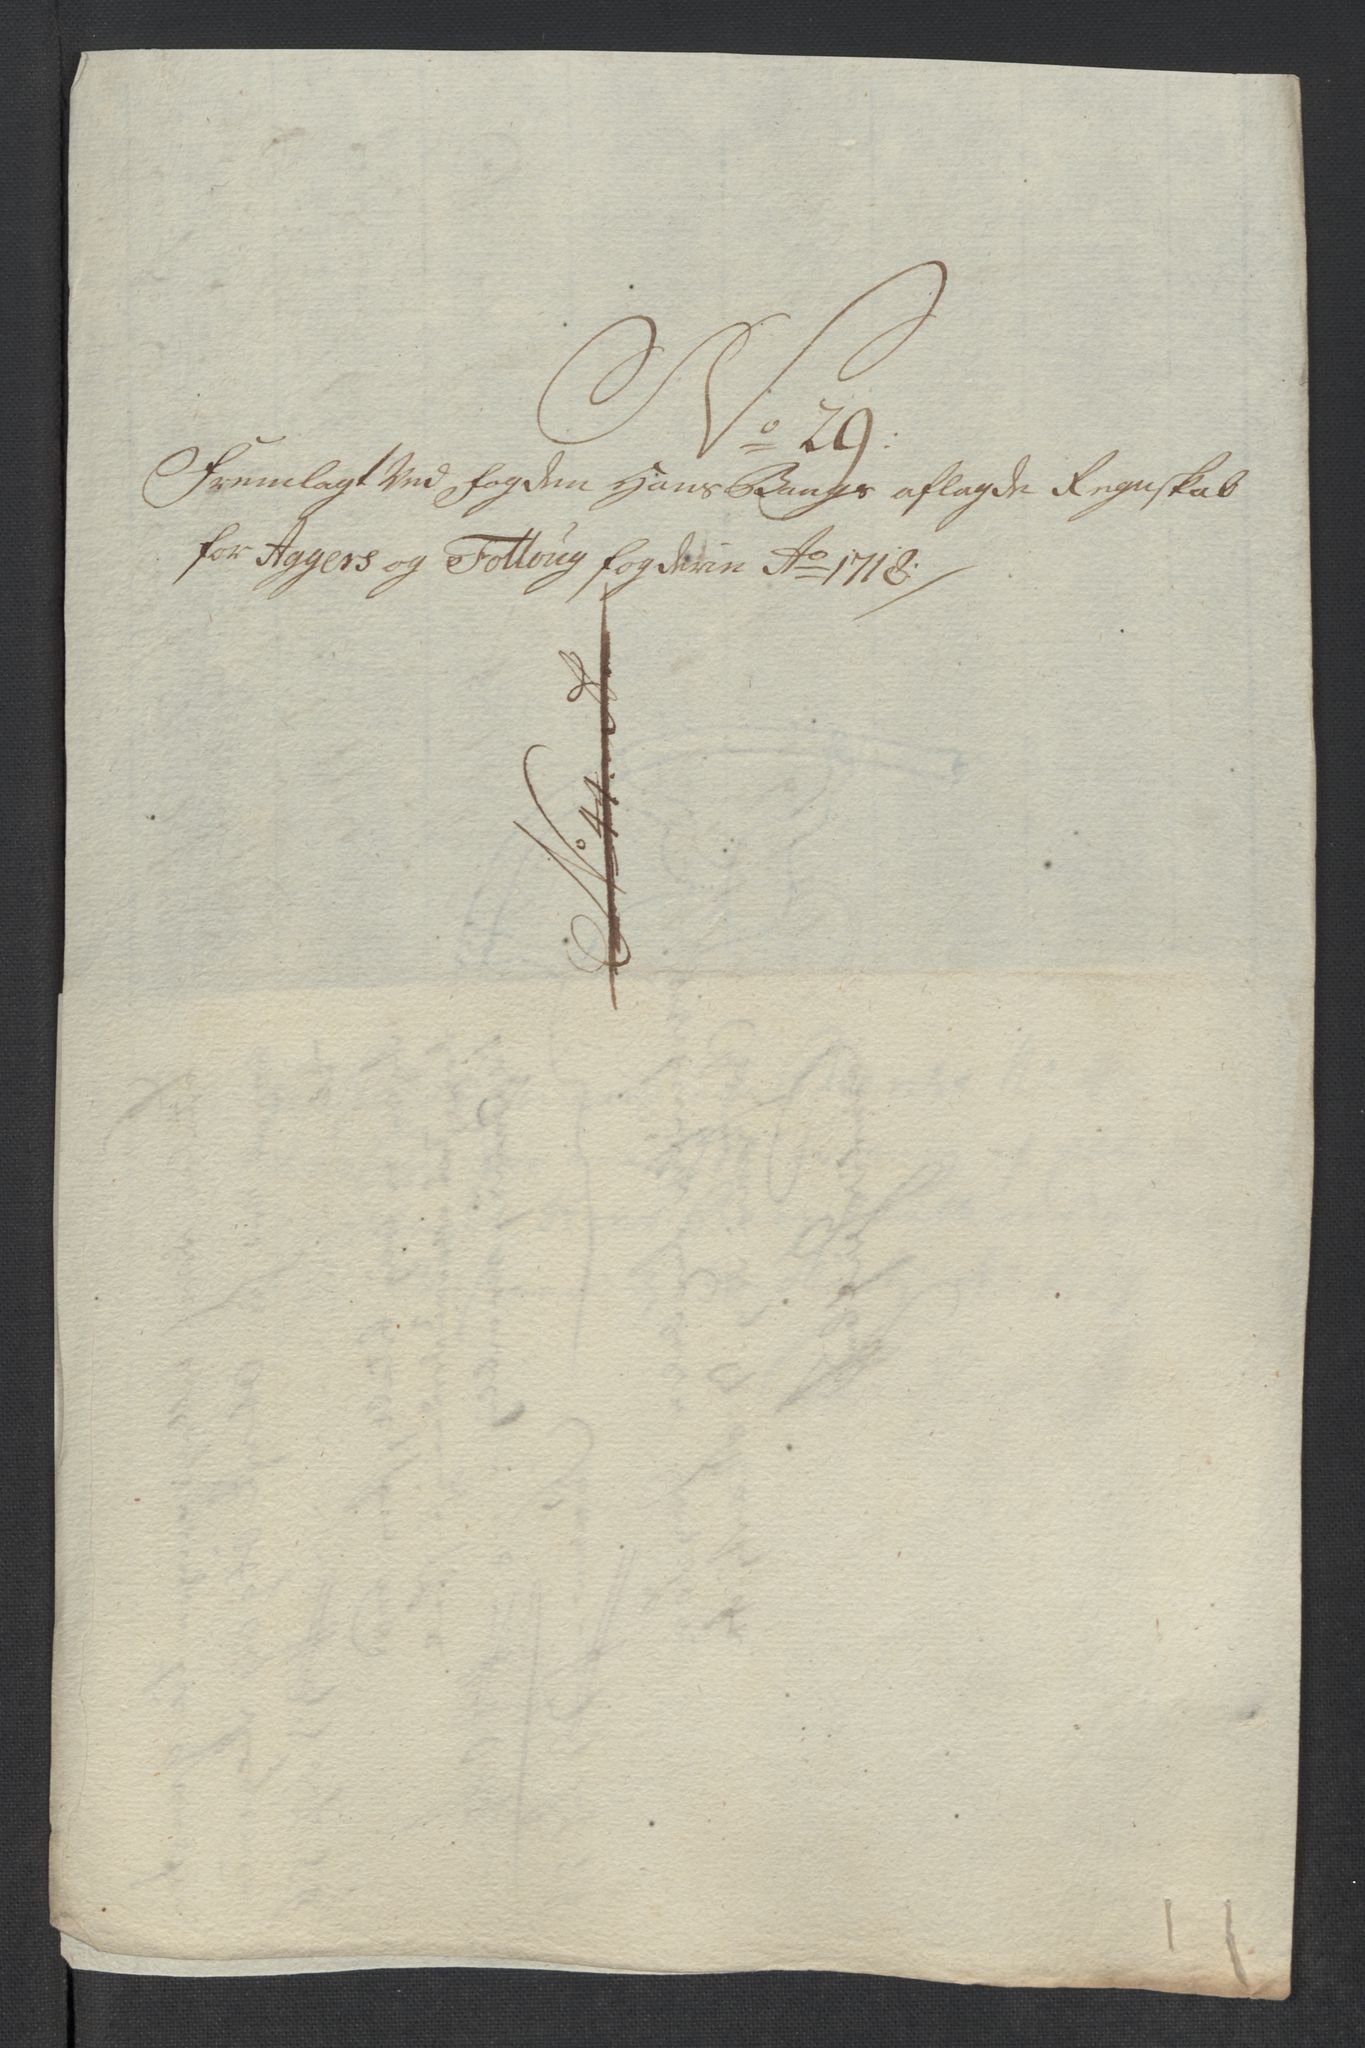 No 29:
Fremlagt Ved fogden Hans Bangs aflagde Regnskab
for Aggers og Folloug fogderie Ao 1718.
No 44.